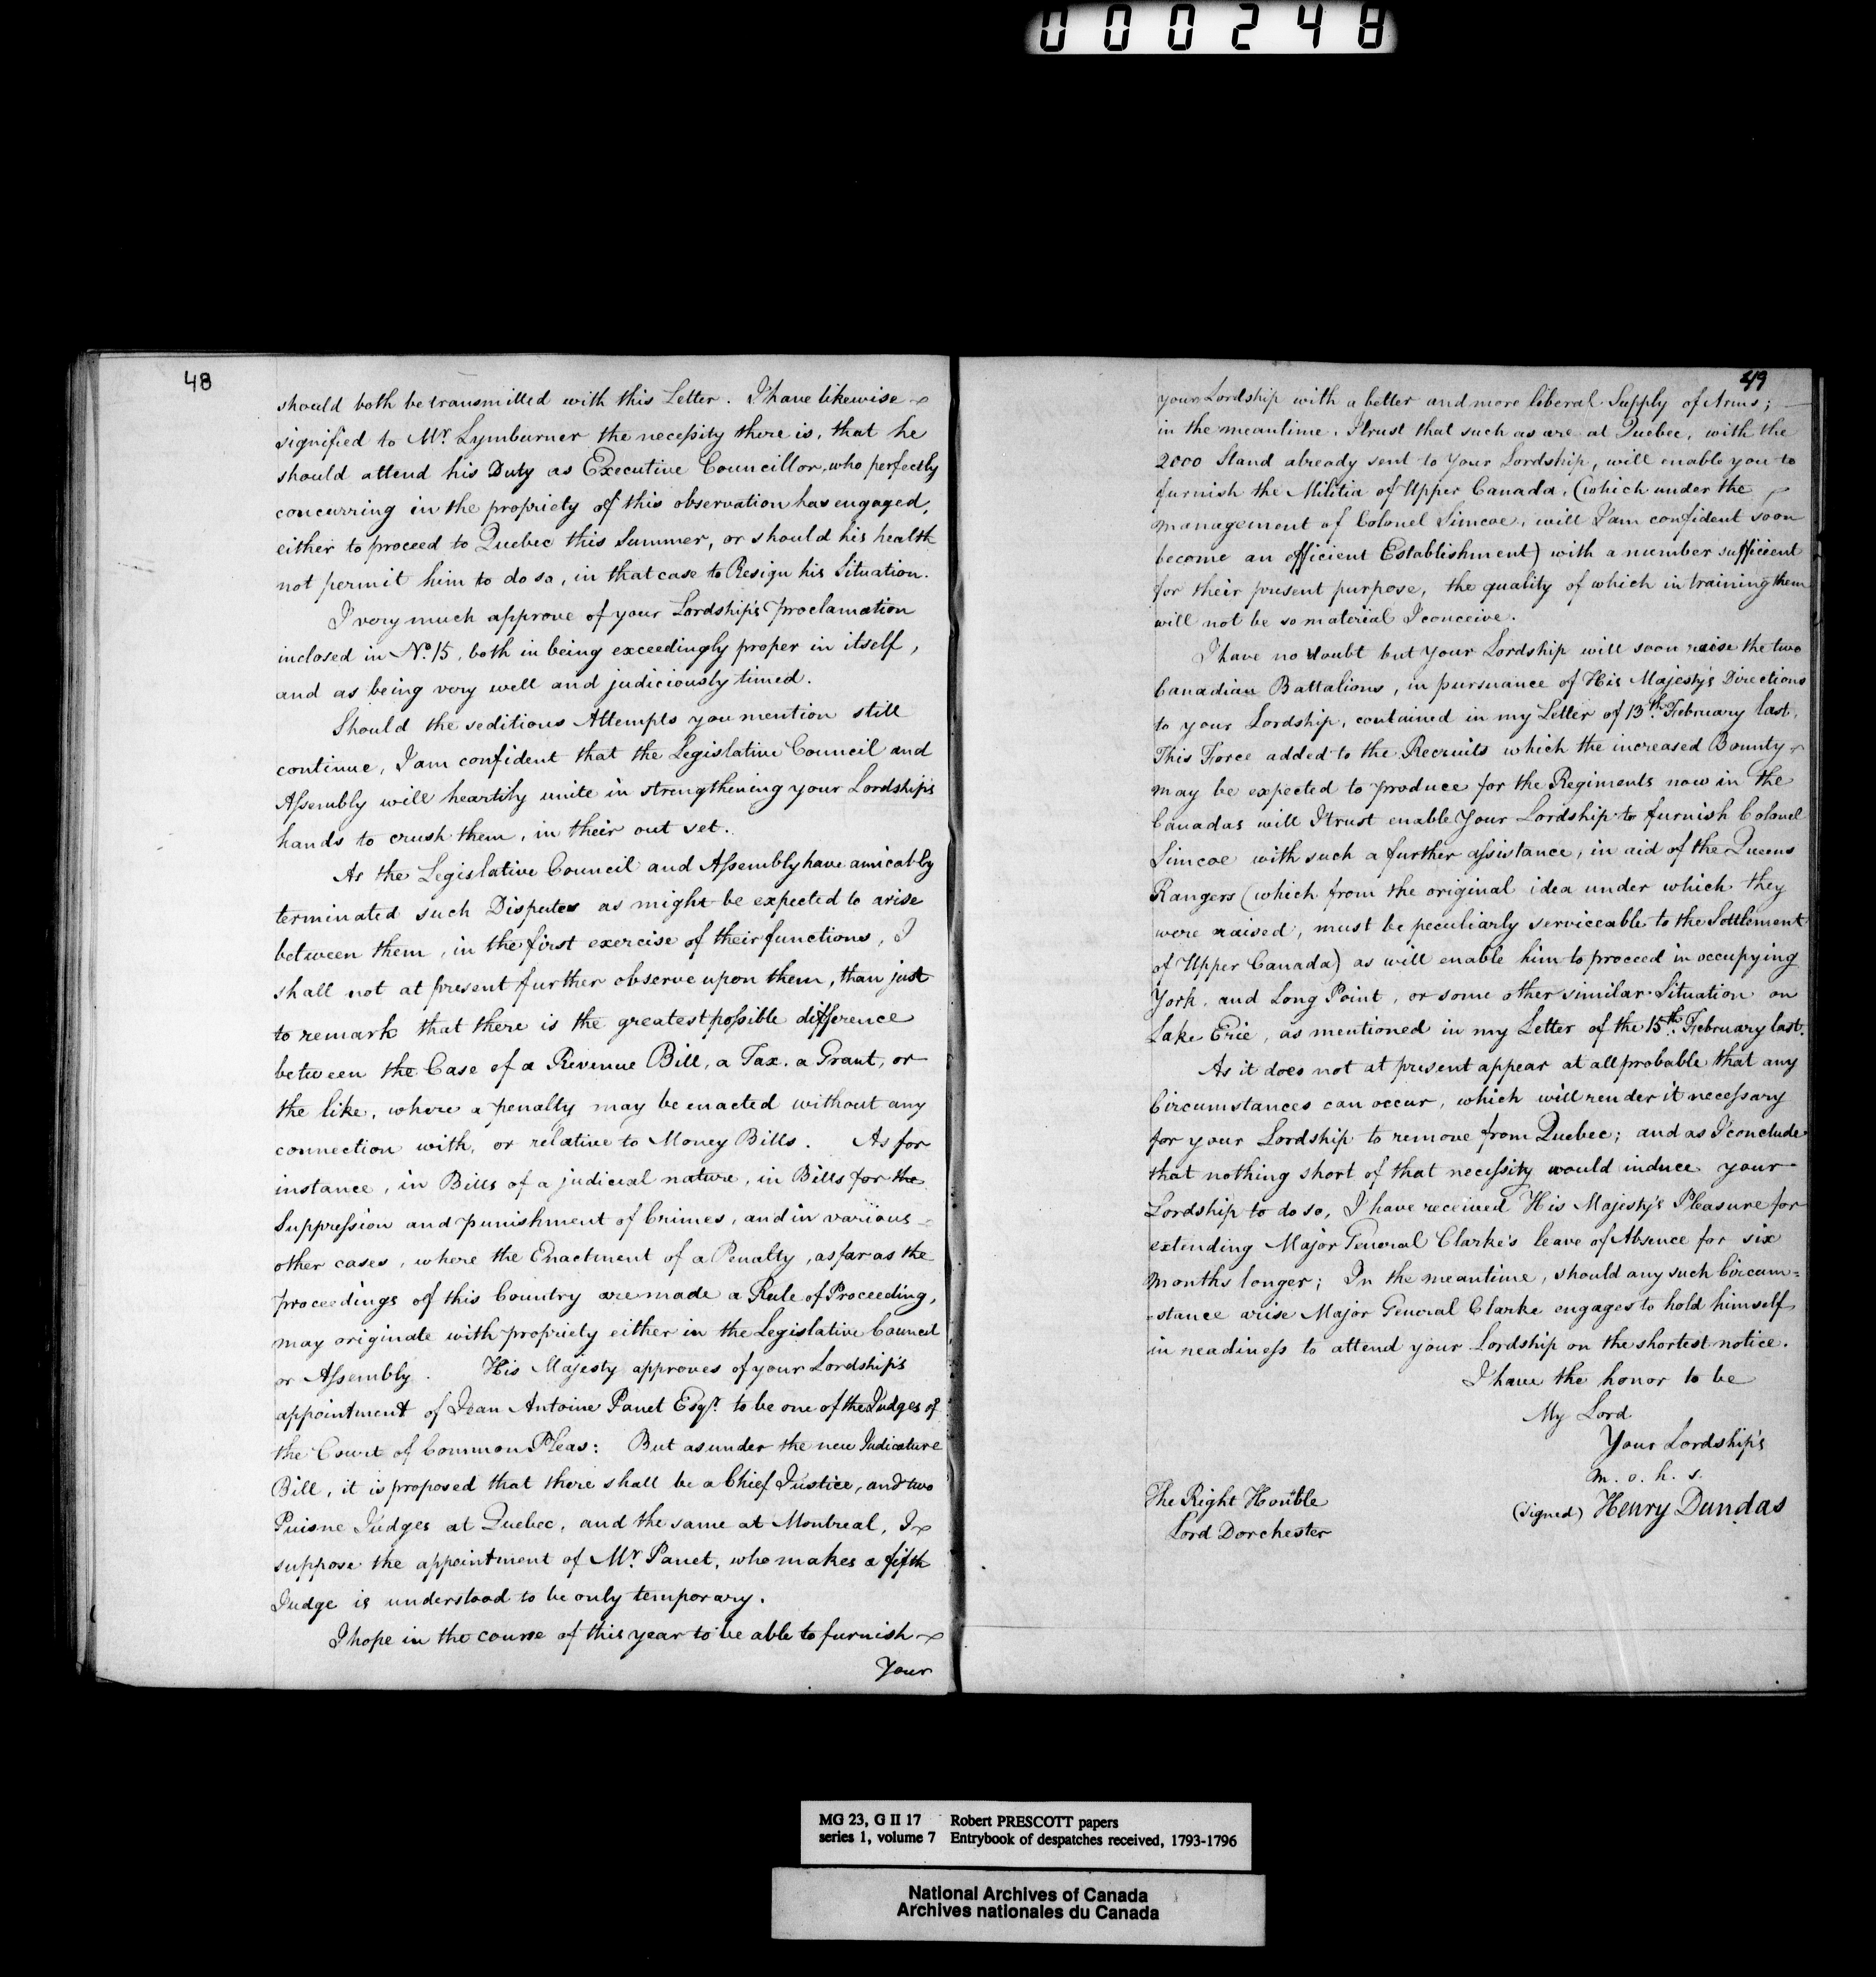 000248
48
should both be transmitted with this Letter. I have likewise
signified to Mr. Lymburner the necessity there is, that he
should attend his Duty as Executive Councillor, who perfectly
concurring in the propriety of this observation has engaged,
either to proceed to Quebec this Summer, or should his health
not permit him to do so, in that case to Resign his Situation.
I very much approve of your Lordship's proclamation
inclosed in No. 15, both in being exceedingly proper in itself,
and as being very well and judiciously timed.
Should the seditious Attempts you mention still
continue, I am confident that the Legislative Council and
Assembly will heartily unite in strengthening your Lordship's
hands to crush them, in their out set.
As the Legislative Council and Assembly have amicably
terminated such Disputes as might be expected to arise
between them, in the first exercise of their functions, I
shall not at present further observe upon them, than just
to remark that there is the greatest possible difference
between the Case of a Revenue Bill, a Tax, a Grant, or
the like, where a penalty may be enacted without any
connection with, or relative to Money Bills. As for
instance, in Bills of a judicial nature, in Bills for the
Suppression and punishment of Crimes, and in various
other cases, where the Enactment of a Penalty, as far as the
proceedings of this Country are made a Rule of Proceeding,
may originate with propriety either in the Legislative Council
or Assembly. His Majesty approves of your Lordship's
appointment of Jean Antoine Panet Esqr. to be one of the Judges of
the Court of Common Pleas: But as under the new Judicature
Bill, it is proposed that there shall be a Chief Justice, and two
Puisne Judges at Quebec, and the same at Montreal, I
suppose the appointment of Mr. Panet, who makes a fifth
Judge is understood to be only temporary.
I hope in the course of this year to be able to furnish
Your
49
your Lordship with a better and more liberal Supply of Arms;
in the meantime, I trust that such as are at Quebec, with the
2000 Stand already sent to Your Lordship, will enable you to
furnish the Militia of Upper Canada, (which under the
management of Colonel Simcoe, will I am confident soon
become an efficient Establishment) with a number sufficient
for their present purpose, the quality of which in training them
will not be so material I conceive.
I have no doubt but your Lordship will soon raise the two
Canadian Battalions, in pursuance of His Majesty's Directions
to your Lordship, contained in my Letter of 13th. February last.
This Force added to the Recruits which the increased Bounty
may be expected to produce for the Regiments now in the
Canadas will I trust enable Your Lordship to furnish Colonel
Simcoe with such a further assistance, in aid of the Queens
Rangers (which from the original idea under which they
were raised, must be peculiarly serviceable to the Settlement
of Upper Canada) as will enable him to proceed in occupying
York, and Long Point, or some other similar Situation on
Lake Erie, as mentioned in my Letter of the 15th. February last.
As it does not at present appear at all probable that any
Circumstances can occur, which will render it necessary
for your Lordship to remove from Quebec; and as I conclude
that nothing short of that necessity would induce your
Lordship to do so, I have received His Majesty's Pleasure for
extending Major General Clarke's leave of Absence for six
months longer; In the meantime, should any such Circum=
=stance arise Major General Clarke engages to hold himself
in readiness to attend your Lordship on the shortest notice.
I have the honor to be
My Lord
Your Lordship's
m. o. h. s.
(signed) Henry Dundas
The Right Honble
Lord Dorchester
MG 23, G II 17 Robert PRESCOTT papers
series 1, volume 7 Entrybook of despatches received, 1793-1796
National Archives of Canada
Archives nationales du Canada